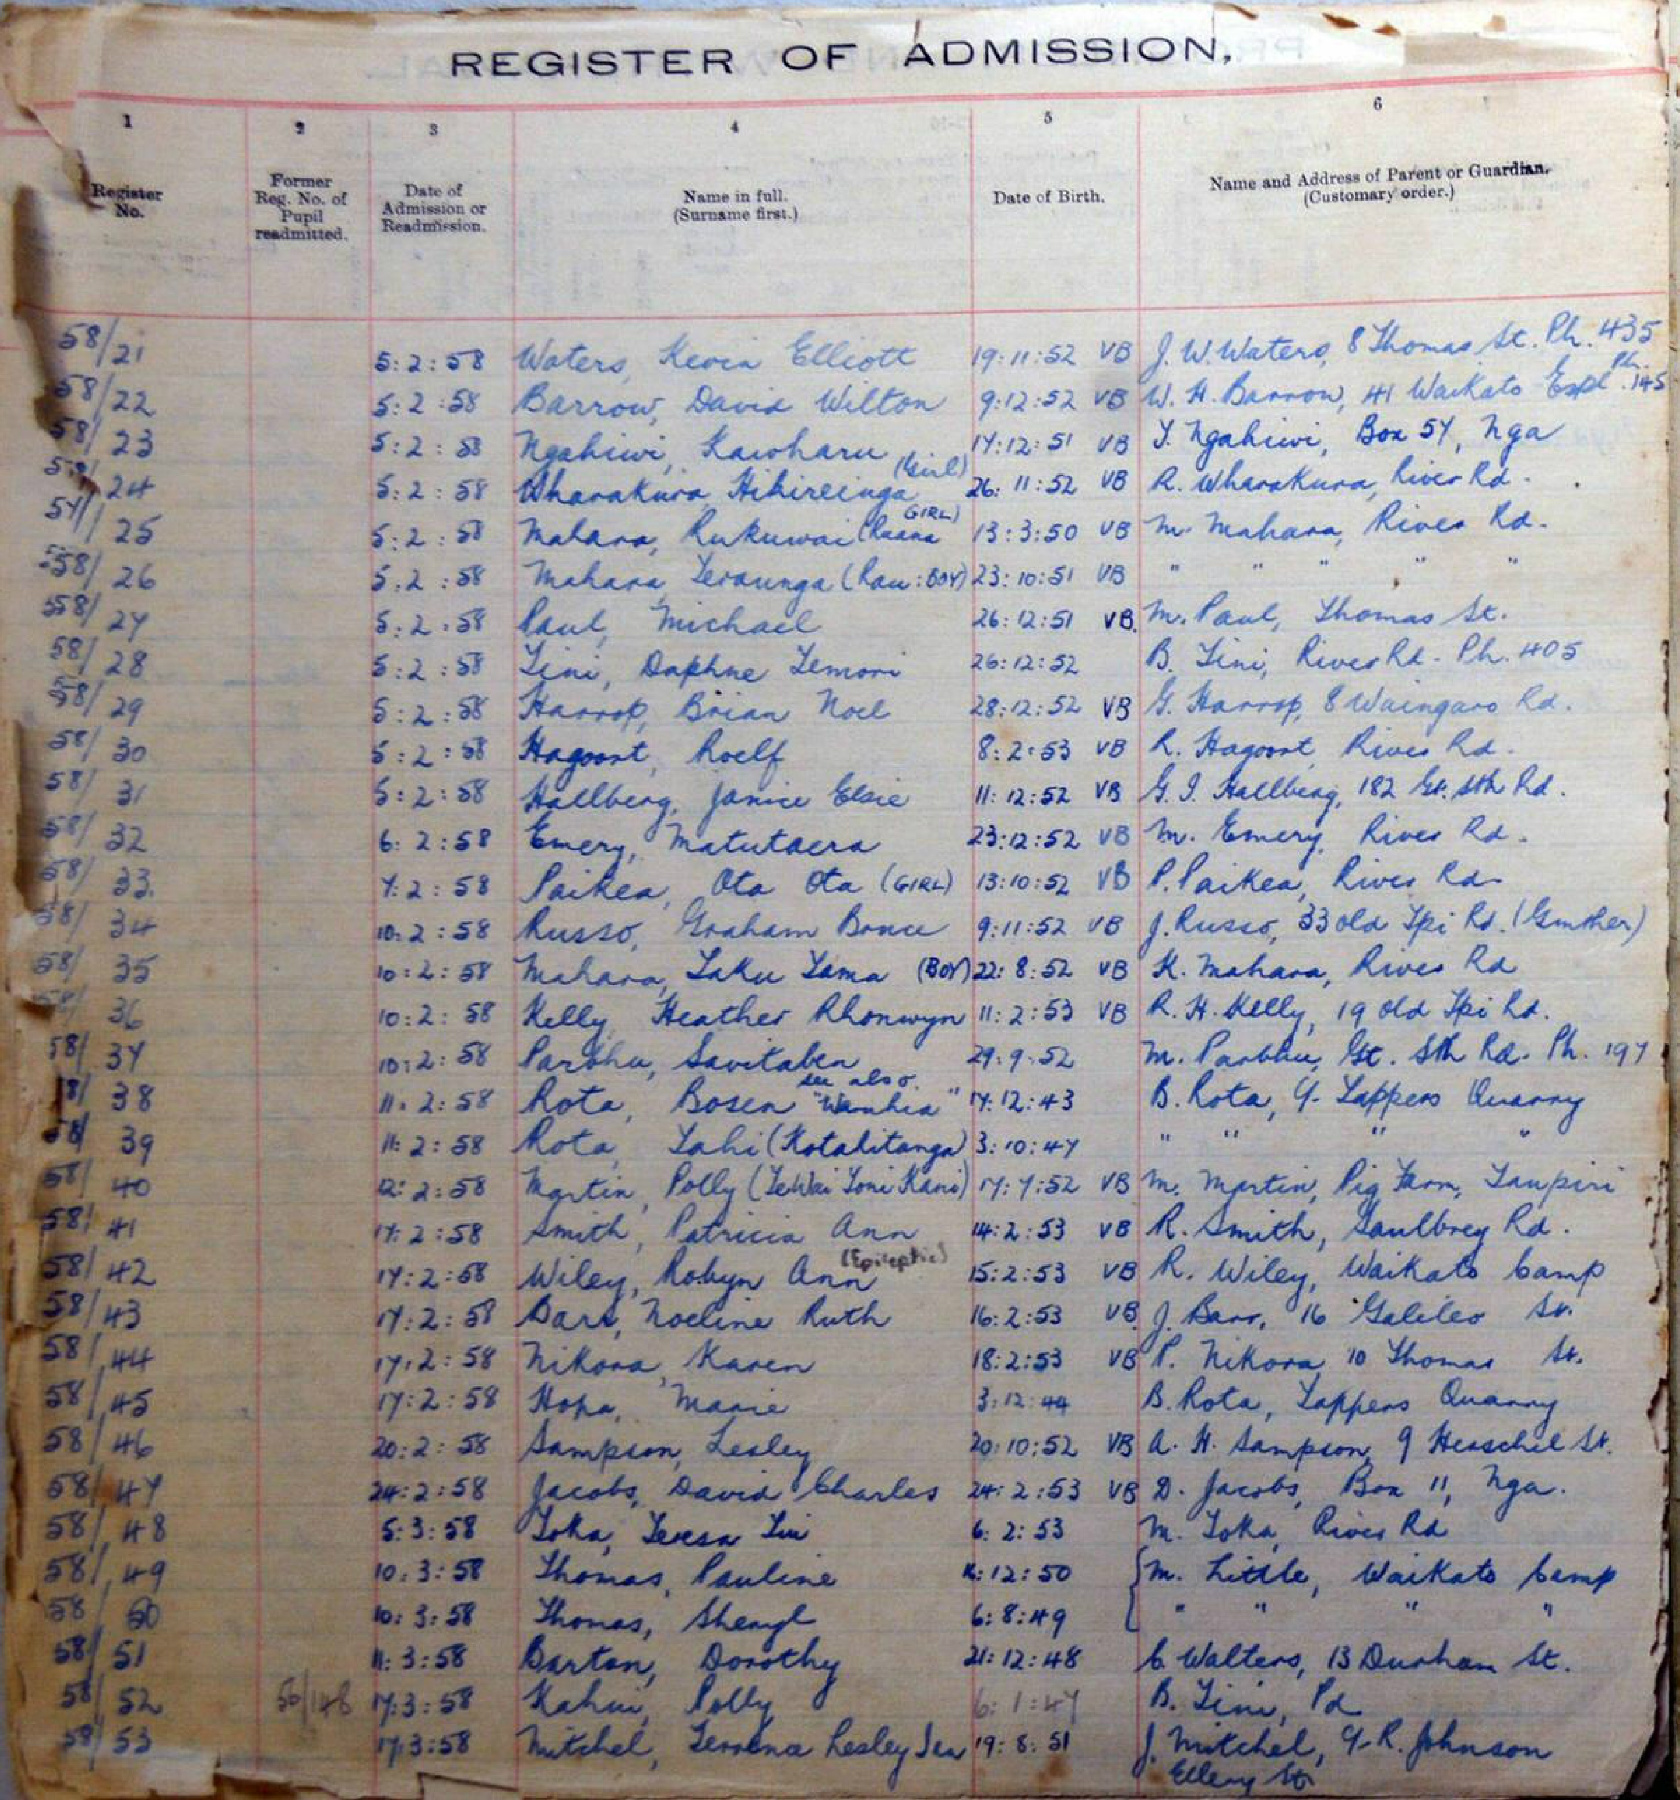 REGISTER OF ADMISSION,
1 2 3 4 5 6
Register No. Former Reg. No. of Pupil readmitted. Date of Admission or Readmission. Name in full. (Surname first.) Date of Birth. Name and Address of Parent or Guardian. (Customary order.)
58/21 5:2:58 Waters, Kevin Elliott 19:11:52 VB J. W. Waters, 8 Thomas St. Ph. 435
58/22 5:2:58 Barrow, David Wilton 9:12:52 VB W. H. Barrow, 41 Waikato Espl. Ph. 145
58/23 5:2:58 Ngahiwi, Kawharu 17:12:51 VB T. Ngahiwi, Box 57, Nga
58/24 5:2:58 Wharakura, Hikireinga (Girl) 26:11:52 VB R. Wharakura, River Rd.
25 5:2:58 Mahara, Rukuwai (Ruana GIRL) 13:3:50 VB M. Mahara, River Rd.
58/26 5:2:58 Mahara, Teraunga (Rau: BOY) 23:10:51 VB " " " " "
58/27 5:2:58 Paul, Michael 26:12:51 VB. M. Paul, Thomas St.
58/28 5:2:58 Tini, Daphne Temori 26:12:52 B. Tini, River Rd. Ph. 405
58/29 5:2:58 Harrop, Brian Noel 28:12:52 VB G. Harrop, 8 Waingaro Rd.
58/30 5:2:58 Hagoort, Roelf 8:2:53 VB R. Hagoort, River Rd.
58/31 5:2:58 Hallberg, Janice Elsie 11:12:52 VB G. I. Hallberg, 182 Gt. Sth Rd.
58/32 6:2:58 Emery, Matutaera 23:12:52 VB M. Emery, River Rd.
58/33. 7:2:58 Paikea, Ota Ota (GIRL) 13:10:52 VB P. Paikea, River Rd.
58/34 10:2:58 Russo, Graham Bruce 9:11:52 VB J. Russo, 33 old Tpi Rd. (Gmother)
58/35 10:2:58 Mahara, Taku Tama (BOY) 22:8:52 VB K. Mahara, River Rd
58/36 10:2:58 Kelly, Heather Rhonwyn 11:2:53 VB R. H. Kelly, 19 Old Tpi Rd.
58/37 10:2:58 Parbhu, Savitaben 29:9:52 M. Parbhu, Gt. Sth Rd. Ph. 197
58/38 11:2:58 Rota, Bosen see also. 17:12:43 B. Rota, 9- Tappers Quarry
58/39 11:2:58 Rota, Tahi (Kotahitanga) 3:10:47 " " " "
58/40 12:2:58 Martin, Polly (TeWai Tomi Kani) 17:7:52 VB M. Martin, Pig Farm, Taupiri
58/41 17:2:58 Smith, Patricia Ann 14:2:53 VB R. Smith, Saulbrey Rd.
58/42 17:2:58 Wiley, Robyn Ann (Epileptic) 15:2:53 VB R. Wiley, Waikato Camp
58/43 17:2:58 Barr, Noeline Ruth 16:2:53 VB J. Barr, 16 Galileo St.
58/44 17:2:58 Nikora, Karen 18:2:53 VB P. Nikora 10 Thomas St.
58/45 17:2:58 Hopa, Marie 3:12:44 B. Rota, Tappers Quarry
58/46 20:2:58 Sampson, Lesley 20:10:52 VB A. H. Sampson, 9 Herschel St.
58/47 24:2:58 Jacobs, David Charles 24:2:53 VB D. Jacobs, Box 11, Nga.
58/48 5:3:58 Toka, Teresa Tui 6:2:53 M. Toka, River Rd
58/49 10:3:58 Thomas, Pauline 12:50 M. Little, Waikato Camp
58/50 10:3:58 Thomas, Sheryl 6:8:49 " " " "
58/51 11:3:58 Barton, Dorothy 21:12:48 C Walters, 13 Durham St.
58/52 56/148 17:3:58 Kahui, Polly 6:1:47 B. Tini, Rd
58/53 17:3:58 Mitchel, Terrena Lesley 19:8:51 J. Mitchel, 9- R. Johnson
Ellery St.